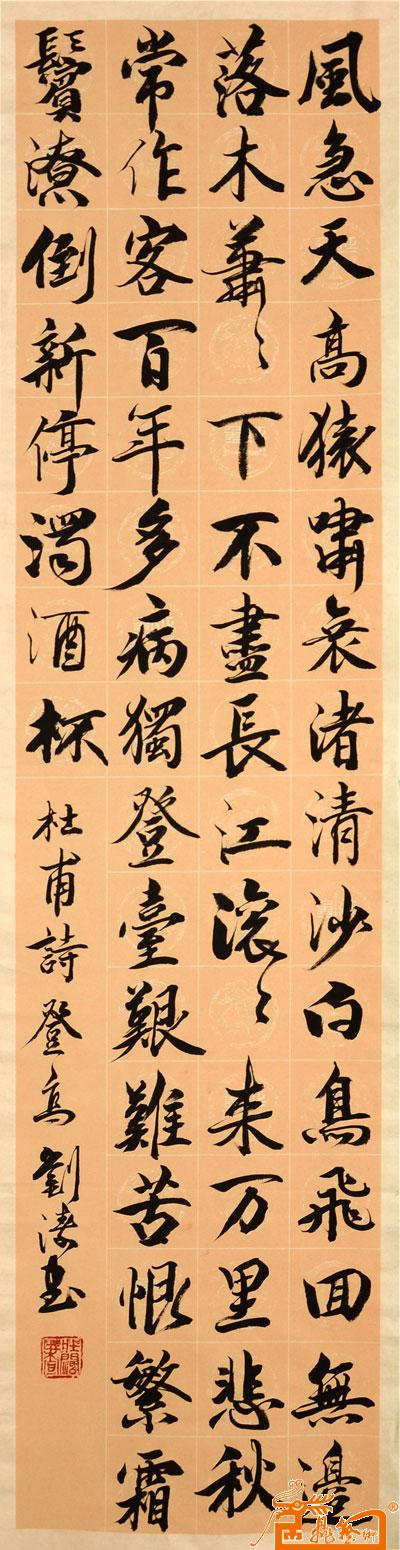 風急天高猿嘯哀渚清沙白鳥飛回無邊
落木蕭〻下不盡長江滾〻来万里悲秋
常作客百年多病獨登臺艱難苦恨繁霜
鬢潦倒新停濁酒杯杜甫詩登高劉書